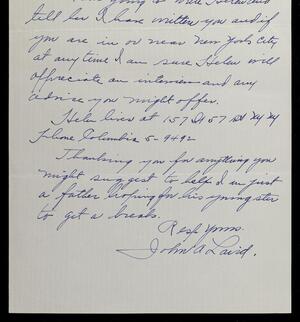 tell her I have written you and if
you are in or near New York City
at any time I am sure Helen will
appreciate an interview and any
advice you might offer.
Helen lives at 157 57 St NY NY
Phone Columbia 5-9492
Thanking you for anything you
might suggest to help I'm just
a father hoping for his youngster
to get a break.
Resp Yours.
John A Laird.